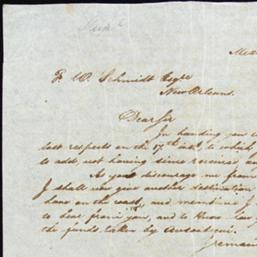 F. W. Schmidt Esqre
New Orleans.
Dear Sir
In handing you
last respects on the 17th ulto, to which
to add, not having since received
As you discourage me from
I shall now give another destination
have on the coast, and meantime I
to hear from you, and to know
the funds taken by
I remain